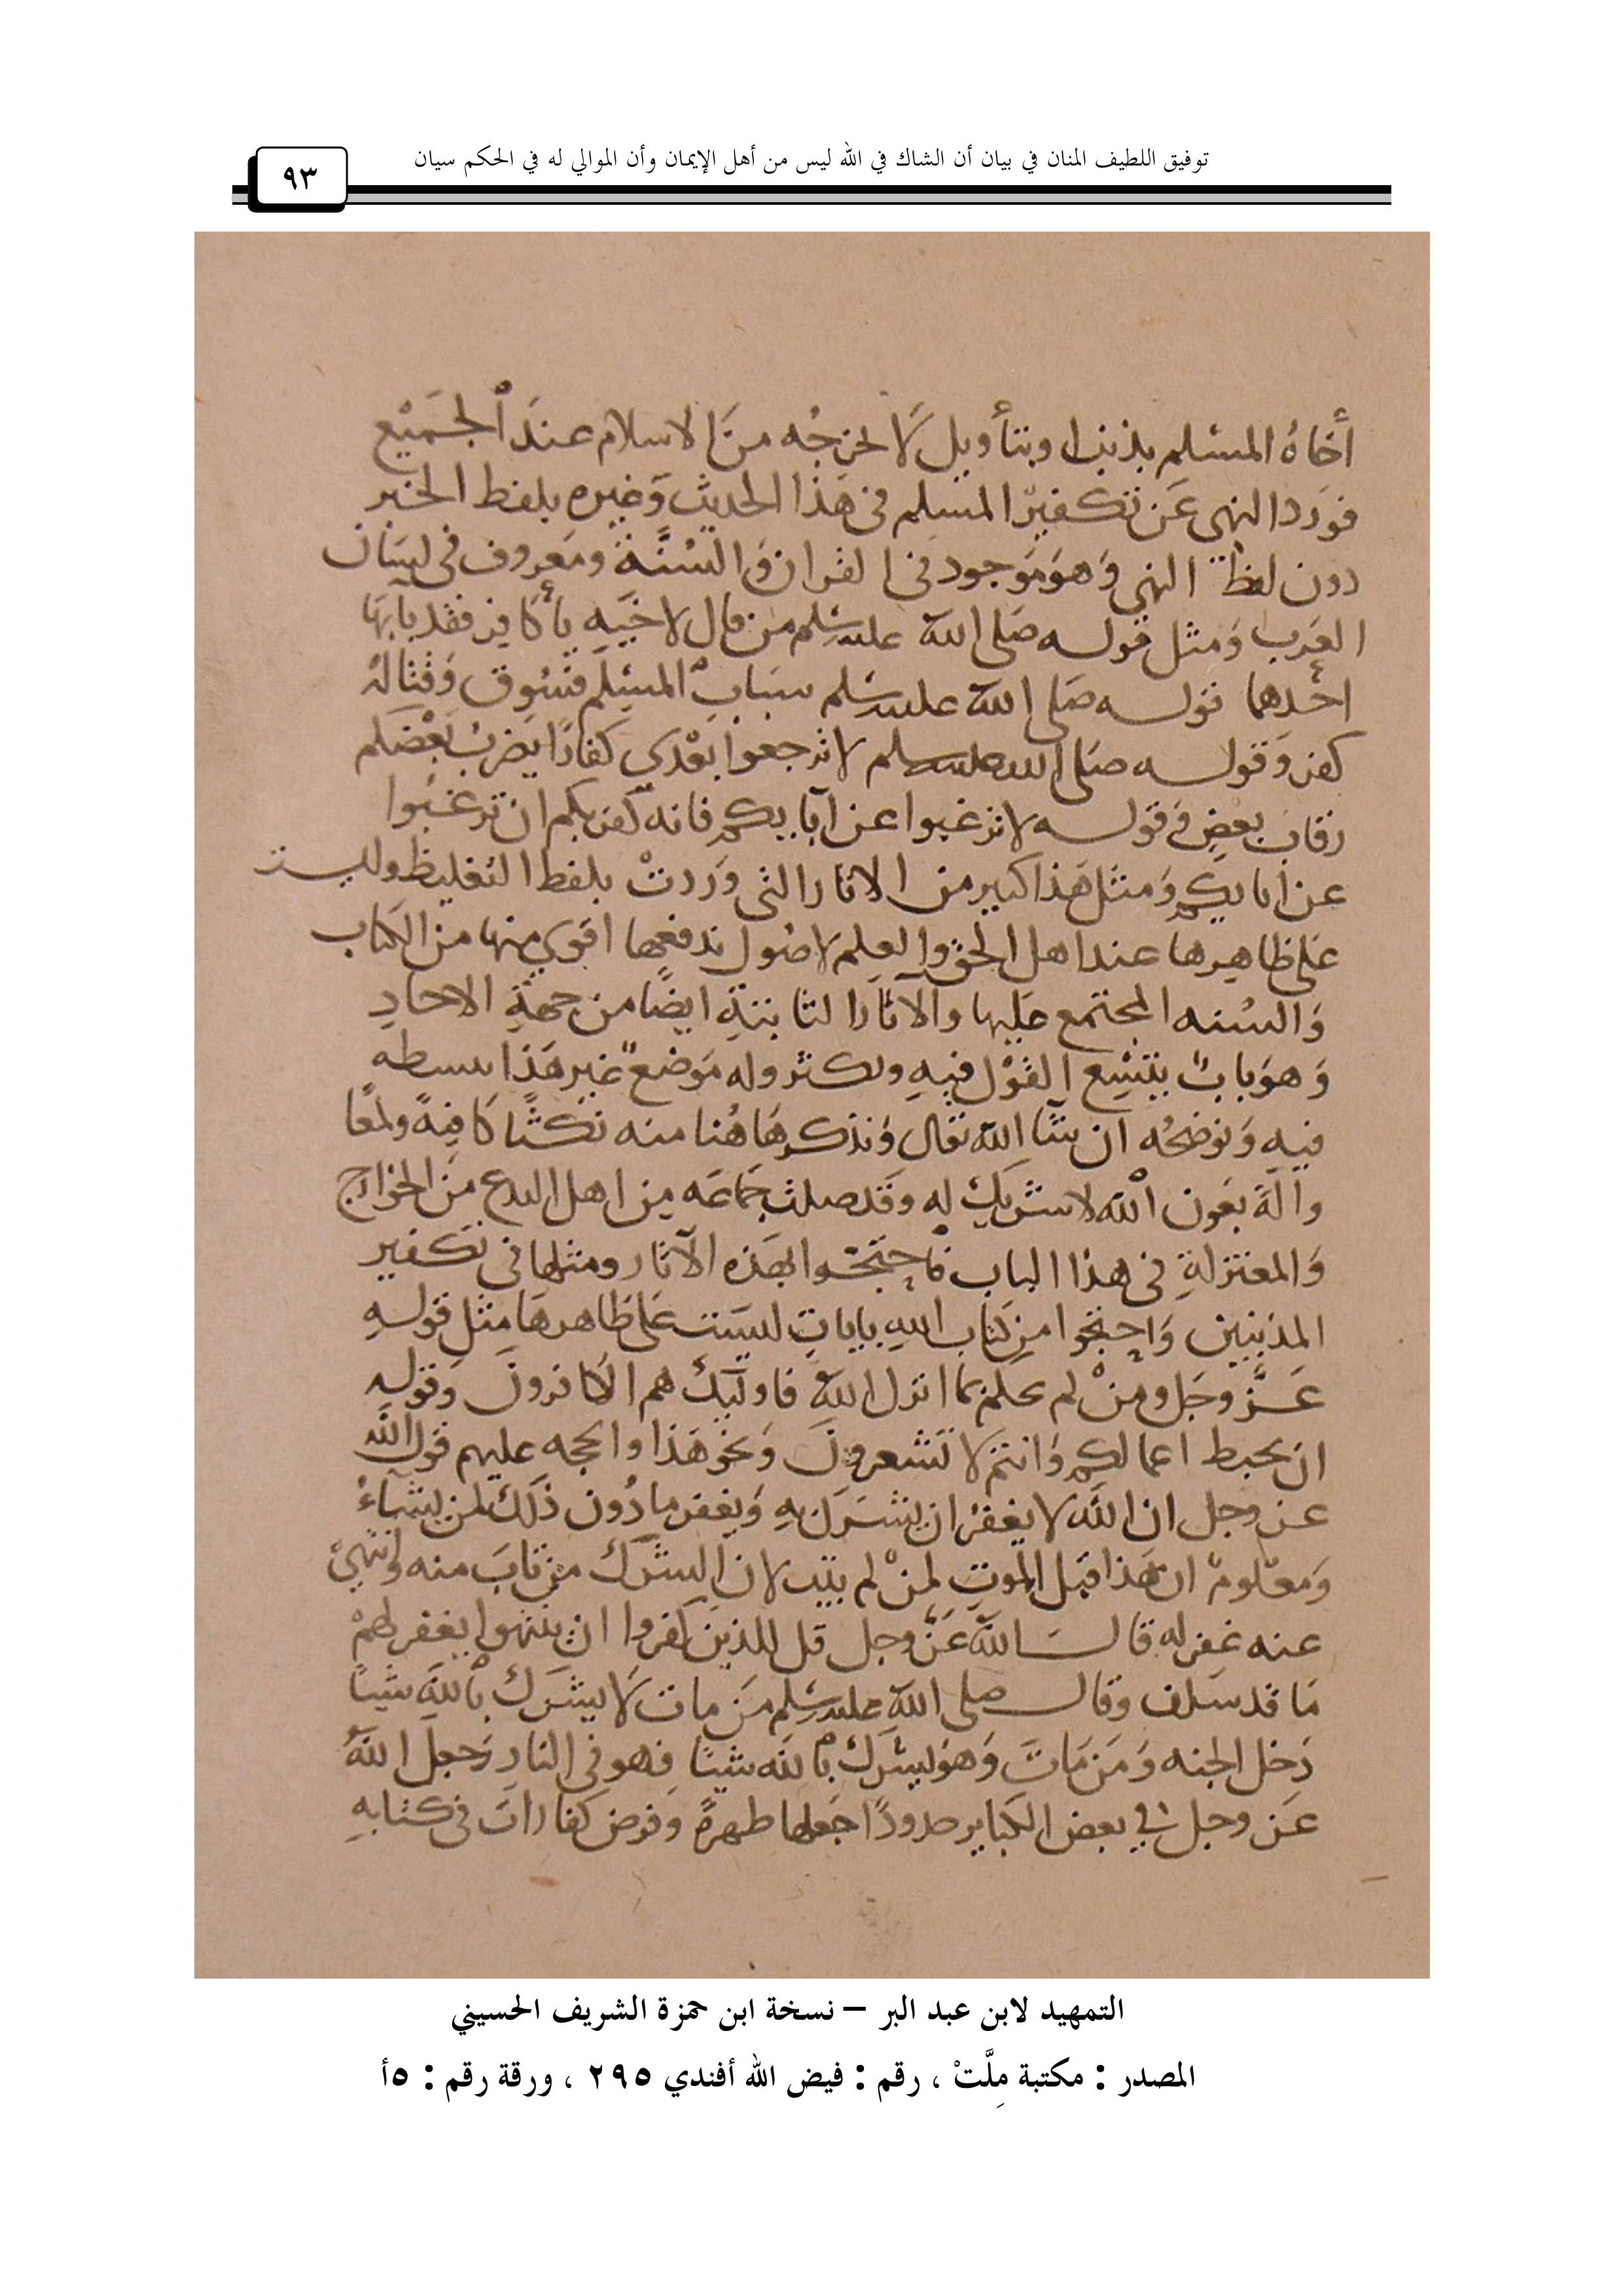 توفيق اللطيف المنان في بيان أن الشاك في الله ليس من أهل الإيمان وأن الموالي له في الحكم سيان
٩٣
أخاهُ المسلم بذنبٍ او بتأويل لَا يخرجُه منَ الاسلام عندَ الْجَميْع
فورَد النهى عَن تكفيرْ المسلِم فى هَذا الحديث وَغيره بلفظ الخبر
دون لفظ النهي وَهوَ مَوجود فى القران وَالسُنَّة ومَعروف فى لسَان
العَرب وَمثل قوله صَلى الله عليه وسَلم من قال لاخيَهِ يا كافِر فقد بآ بَها
احَدهما قوله صَلى الله عليه وسَلم سبَابْ المسْلِم فسُوق وَقتاله
كفر وَقوله صَلى الله عليه وسلم لا ترجعوا بعْدي كفارًا يضرب بَعْضكم
رقابَ بعضٍ وَقوله لا ترغبوا عن آبايكم فانه كفر بكم ان ترغبُوا
عن ابايكم وَمثل هَذا كبير من الاثار التى وَردتْ بلفظ التغليظ وليست
عَلى ظاهِرها عند اهل الحق والعِلم لاصُول تدفعها اقوي منها من الكتاب
وَالسُنه المجتمع عَليها والآثار الثابتةِ ايضًا من جهةِ الاحادِ
وَهوَ بابٌ يتسِع القوْل فيهِ ويكثر وله مَوضعٌ غير هَذا نبسطه
فيهِ وَنوضحُه ان شآ الله تعالى وَنذكر هَاهُنا منه نكتًا كافيةً ولمعًا
والةً بعَون اْلله لا شريك له وقَد ضلت جَماعَه مِن اهل البدع مِنَ الخوارج
وَالمعتزلةِ فى هذا الباب فاحتَجّوا بهَذه الآثار ومثلها فى تكفير
المذنبين وَاحتجّوا مِن كتاب اللهِ باياتٍ ليسَت عَلى ظاهرهَا مثل قولهِ
عَزَّ وجَل ومنْ لم يحكم بما انزل اللهُ فاوليك هم الكافرونَ وَقوله
ان يحبط اعمالكم وَانتم لا تَشعرونَ وَنحو هَذا والحجه عليهم قول الله
عز وجل ان اللَه لا يغفرُ ان يشرَك بهِ وَيغفر ما دُون ذلَك لمن يشآءُ
وَمعْلومْ ان هَذا قبَل الموتِ لمنْ لم يتب لان الشرك من تابَ منه وانتهيْ
عنه غفِر له قال الله عَزَّ وجل قل للذينَ كفروا ان ينتهوا يغفر لهمْ
مَا قد سَلف وقال صلى الله عليه وسَلم مَن مات لَا يشرَك باْللَهِ شيئًا
دَخل الجنه وَمَن مَاتَ وَهوَ يشرَك باْللَه شيئًا فهو فى النارِ وَجعلَ اللهُ
عَز وجل في بعض الكَباير حدودًا جَعلها طهرةً وَفرض كفاراتَ فى كتابهِ
التمهيد لابن عبد البر – نسخة ابن حمزة الشريف الحسيني
المصدر : مكتبة مِلَّتْ ، رقم : فيض الله أفندي ٢٩٥ ، ورقة رقم : ٥أ